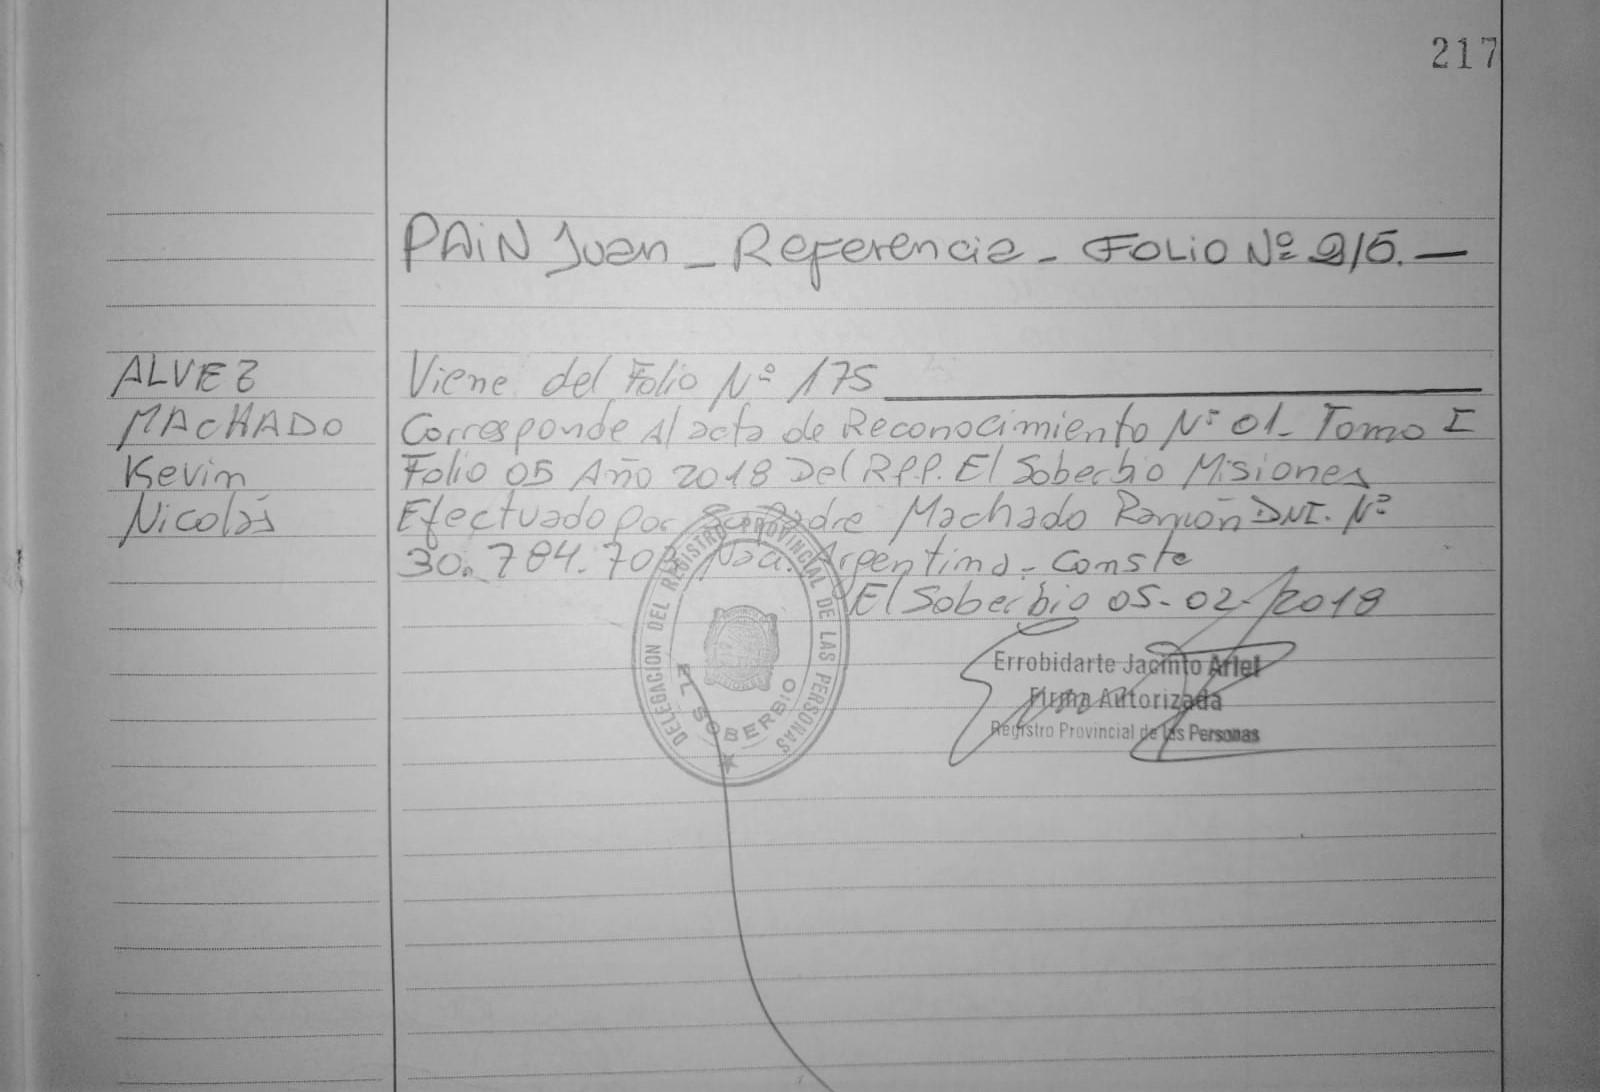 217
PAiN Juan _ Referencia - FOLiO Nº 215. —
ALVEZ
MACHADO
Kevin
Nicolás
Viene del Folio Nº 175
Corresponde Al acta de Reconocimiento Nº 01_ Tomo I
Folio 05 Año 2018 Del R.P.P. El Soberbio Misiones
Efectuado por Su Padre Machado Ramón DNI. Nº
30.784.70 Nac. Argentina. Conste
El Soberbio 05-02-/2018
DELEGACION DEL REGISTRO PROVINCIAL DE LAS PERSONAS
EL SOBERBIO
Errobidarte Jacinto Ariel
Firma Autorizada
Registro Provincial de las Personas